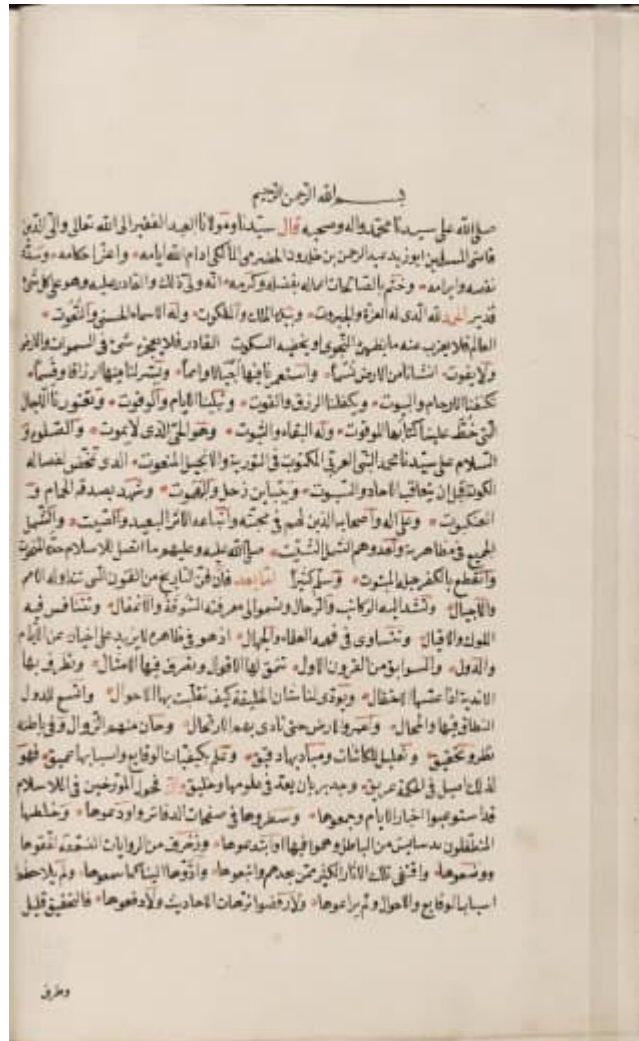 بسم الله الرحمن الرحيم
صلى الله على سيدنا محمد واله وصحبه قال سيدنا ومولانا العبد الفقير الى الله تعالى ولى الدين
قاضى المسلمين ابو زيد عبد الرحمن بن خلدون الحضرمى المالكى ادام الله ايامه واعز احكامه
نقضه وابرامه وختم بالصالحات اعماله بفضله وكرمه انه ولى ذلك والقادر عليه وهو على كل شئ
قدير الحمد لله الذى له العزة والجبروت وبيده الملك والملكوت وله الاسماء الحسنى والنعوت
العالم فلا يعزب عنه ما تظهره النجوى او يخفيه السكوت القادر فلا يعجزه شئ فى السموات والارض
ولا يفوت انشأنا من الارض نسما واستعمرنا فيها اجيالا وامما ويسر لنا منها ارزاقا وقسما
تكنفنا الارحام والبيوت ويكفلنا الرزق والقوت وتبلينا الايام والوقوت وتعتورنا الاجال
التى خط علينا كتابها الموقوت وله البقاء والثبوت وهو الحى الذى لا يموت والصلوة و
السلام على سيدنا محمد النبى العربى المكتوب فى التورية والانجيل المنعوت الذى تمخض لفصاله
الكون قبل ان يتعاقب الاحاد والسبوت ويتباين زحل وشهد بصدقه الحمام و
العنكبوت وعلى اله واصحابه الذين لهم فى محبته واتباعه الاثر البعيد والصيت والشمل
الجميع فى مظاهرته ولعدوهم الشمل الشتيت صلى الله عليه وعليهم ما اتصل للاسلام جده المبخوت
وانقطع بالكفر حبله المبتوت وسلم كثيرا اما بعد فان فن التاريخ من الفنون التى تتداوله الامم
والاجيال وتشد اليه الركائب والرحال وتسمو الى معرفته السوقة والاغفال وتتنافس فيه
الملوك والاقيال ويتساوى فى فهمه العلماء والجهال اذ هو فى ظاهره لا يزيد على اخبار عن الايام
والدول والسوابق من القرون الاول تنمق لها الاقوال وتصرف فيها الامثال وتطرف بها
الاندية اذا غصها الاحتفال وتؤدى لنا شان الخليقة كيف تقلبت بها الاحوال واتسع للدول
النطاق فيها والمجال وعمروا الارض حتى نادى بهم الارتحال وحان منهم الزوال وفى باطنه
نظر وتحقيق وتعليل للكائنات ومباديها دقيق وعلم بكيفيات الوقايع واسبابها عميق فهو
لذلك اصيل فى الحكمة عريق وجدير بان يعد فى علومها وخليق وان فحول المؤرخين فى الاسلام
قد استوعبوا اخبار الايام وجمعوها وسطروها فى صفحات الدفاتر واودعوها وخلطها
المتطفلون بدسايس من الباطل وهموا فيها او ابتدعوها وزخرف من الروايات المضعفة لفقوها
ووضعوها واقتفى تلك الاثار الكثير ممن بعدهم واتبعوها وادوها الينا كما سمعوها ولم يلاحظوا
اسباب الوقايع والاحوال ولم يراعوها ولا رفضوا ترهات الاحاديث ولا دفعوها فالتحقيق قليل
وطرف